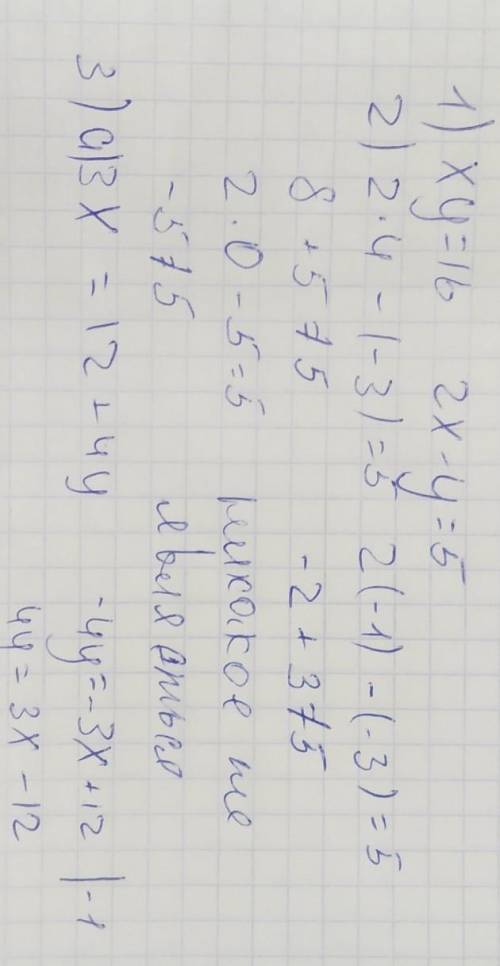 1) xy=16 2x-y=5
2) 2·4-(-3)=5 2(-1)-(-3)=5
8+5≠5 -2+3≠5
2·0-5=5 никакое не
-5≠5
3) a) 3x=12+4y -4y=-3x+12 |-1
4y=3x-12